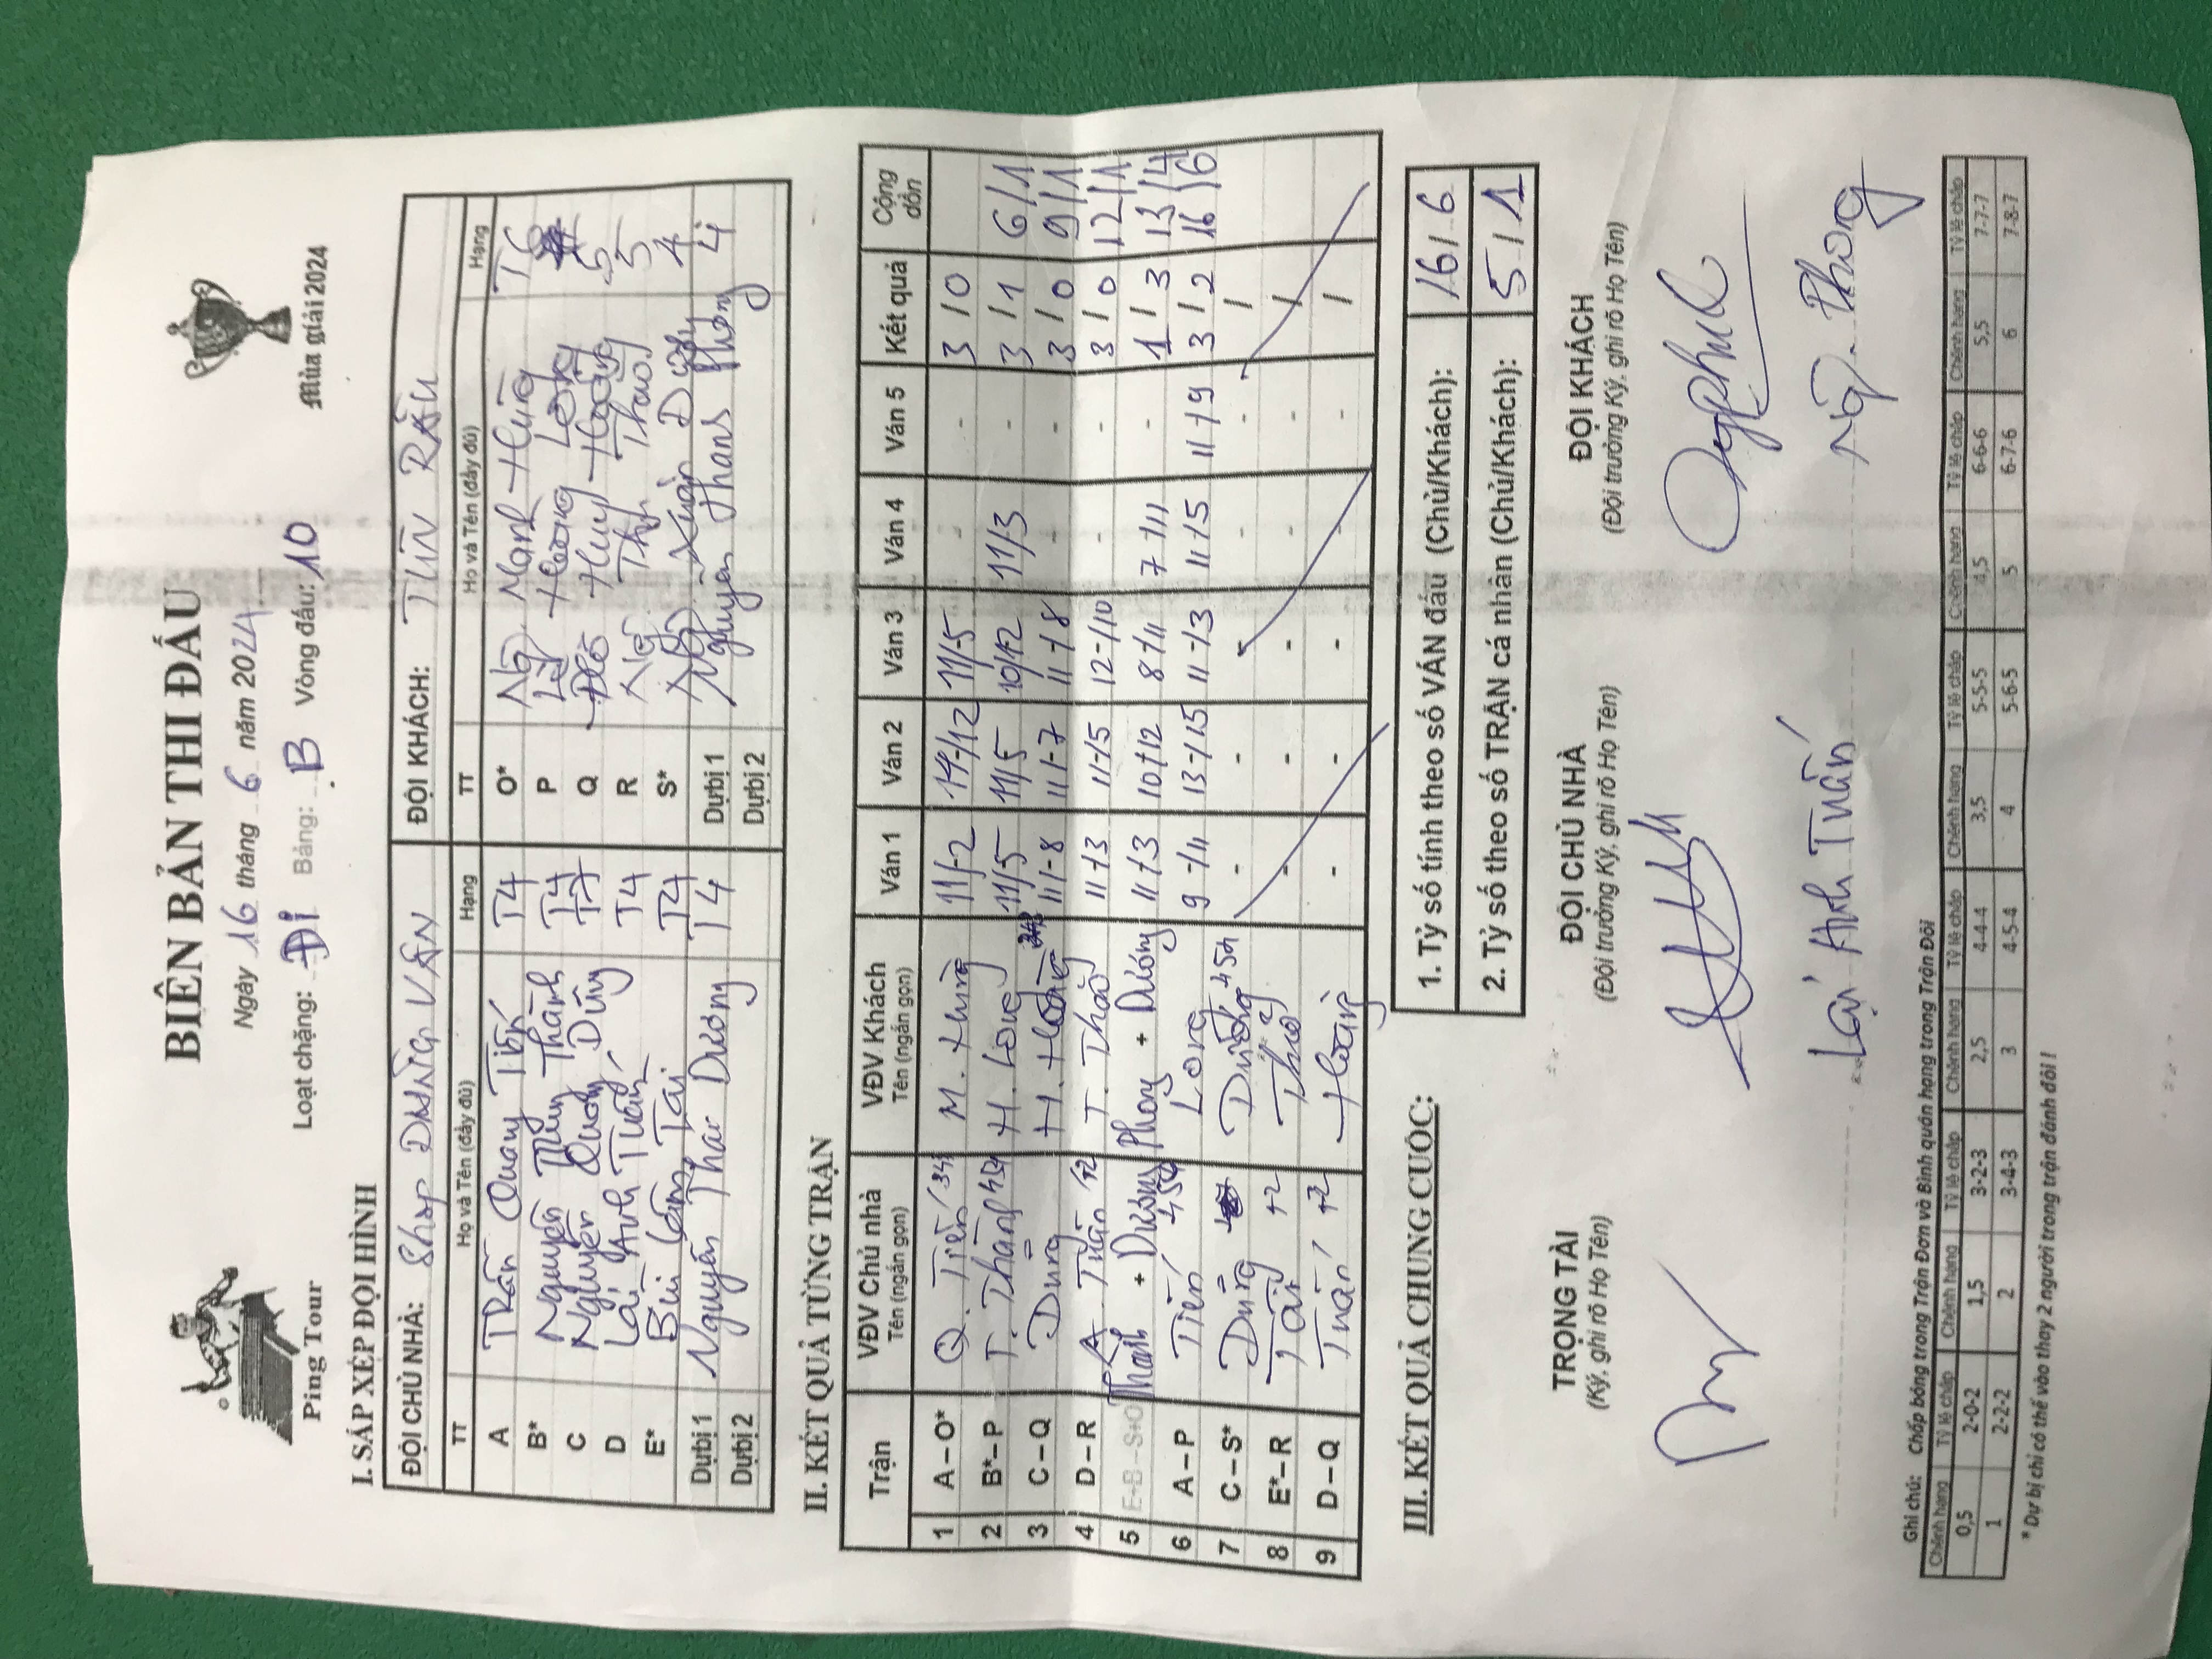 BIÊN BẢN THI ĐẤU
Ping Tour
Mùa giải 2024
Ngày 16 tháng 6 năm 2024
Loạt chặng: Đi Bảng: B Vòng đấu: 10
I. SẮP XẾP ĐỘI HÌNH
ĐỘI CHỦ NHÀ: Shop DMNIC VÂN ĐỘI KHÁCH: TIẾN RÂU
TT Họ và Tên (đầy đủ) Hạng TT Họ và Tên (đầy đủ) Hạng
A Trần Quang Tiến T4 O* Mạnh Hùng T6
B* Nguyễn Thành T4 P Hoàng Long
C Nguyễn Quang Dũng T7 Q Đỗ Huy Hoàng 5
D Lại Anh Tuấn T4 R Thảo 5
E* Bùi Tài T4 S* Xuân 4
Dự bị 1 Nguyễn Thái Dương T4 Dự bị 1 Nguyễn Thanh Phong 4
Dự bị 2 Dự bị 2
II. KẾT QUẢ TỪNG TRẬN
Trận VĐV Chủ nhà Tên (ngắn gọn) VĐV Khách Tên (ngắn gọn) Ván 1 Ván 2 Ván 3 Ván 4 Ván 5 Kết quả Cộng dồn
1 A – O* Q. Tiến M. Hùng 11/-2 14-/12 11/-5 - - 3 / 0
2 B* – P T. Thành 454 H. Long 11/-5 11/5 10/12 11/3 - 3 / 1 6/1
3 C – Q Dũng H. Hoàng 11/-8 11/-7 11-/8 - - 3 / 0 9/1
4 D – R A Tuấn +2 T. Thảo 11-/3 11-/5 12-/10 - - 3 / 0 12/1
5 E+B – S+O Thành + Dương Phong + Dương 11-/3 10-/12 8-/11 7/11 - 1 / 3 13/4
6 A – P Tiến 454 Long 9-/11 13-/15 11-/3 11/5 11/9 3 / 2 16/6
7 C – S* Dũng Dương 454 - - - - /
8 E* – R Tài +2 Thảo - - - - - /
9 D – Q Tuấn +2 Hoàng - - - - - /
III. KẾT QUẢ CHUNG CUỘC:
1. Tỷ số tính theo số VÁN đấu (Chủ/Khách): 16/6
2. Tỷ số theo số TRẬN cá nhân (Chủ/Khách): 5/1
TRỌNG TÀI ĐỘI CHỦ NHÀ ĐỘI KHÁCH
(Ký, ghi rõ Họ Tên) (Đội trưởng Ký, ghi rõ Họ Tên) (Đội trưởng Ký, ghi rõ Họ Tên)
Lại Anh Tuấn Phong
Ghi chú: Chấp bóng trong Trận Đơn và Bình quân hạng trong Trận Đôi
Chênh hạng Tỷ lệ chấp Chênh hạng Tỷ lệ chấp Chênh hạng Tỷ lệ chấp Chênh hạng Tỷ lệ chấp Chênh hạng Tỷ lệ chấp Chênh hạng Tỷ lệ chấp
0,5 2-0-2 1,5 3-2-3 2,5 4-4-4 3,5 5-5-5 4,5 6-6-6 5,5 7-7-7
1 2-2-2 2 3-4-3 3 4-5-4 4 5-6-5 5 6-7-6 6 7-8-7
* Dự bị chỉ có thể vào thay 2 người trong trận đánh đôi !